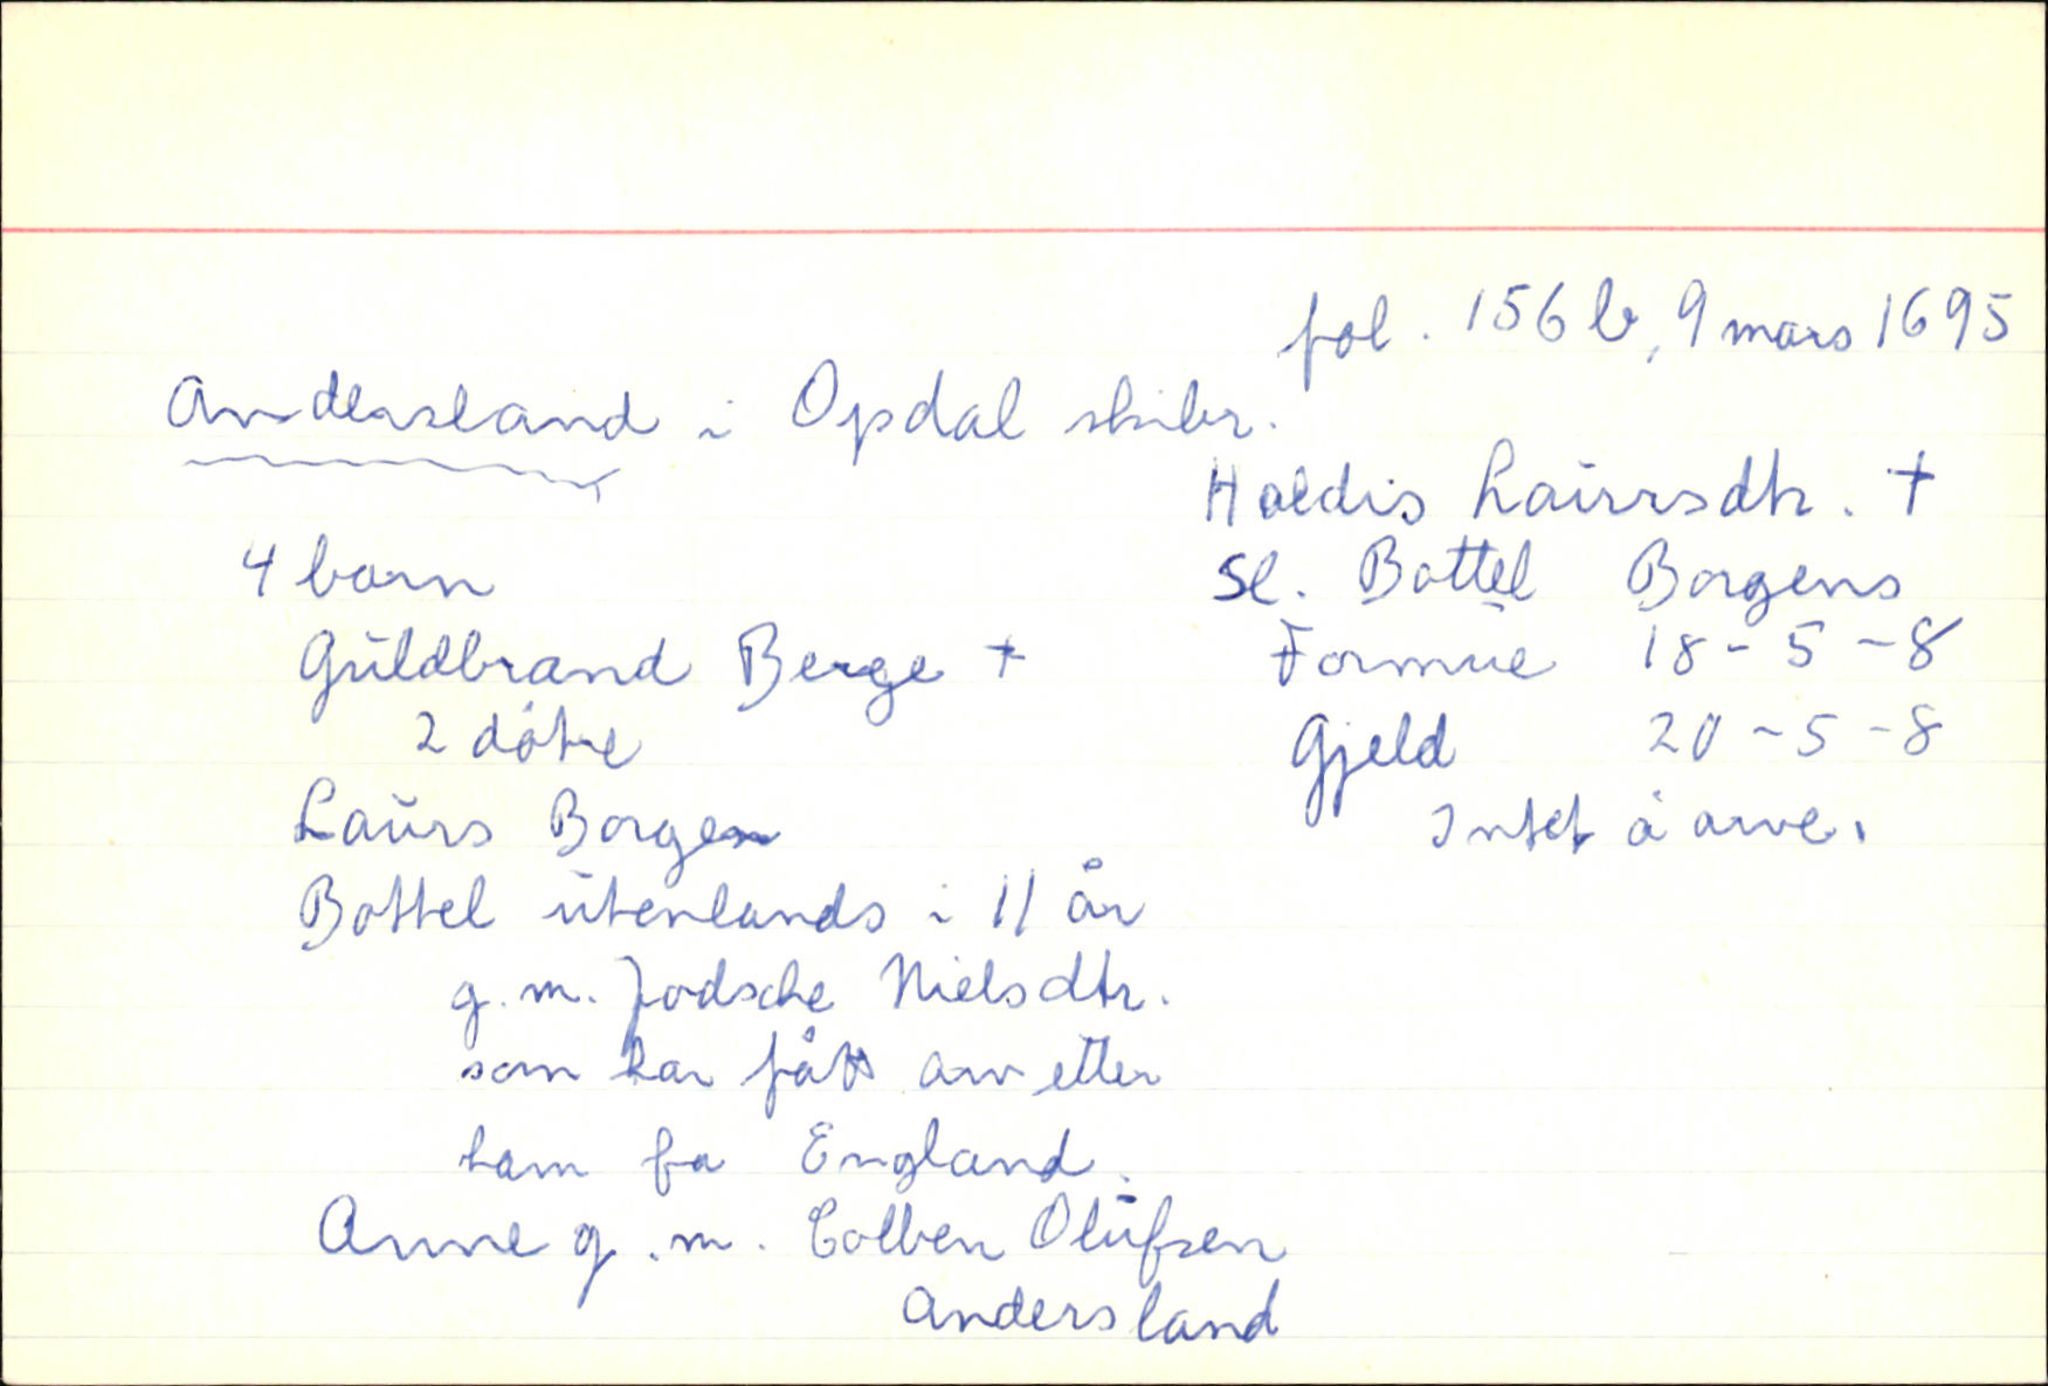 fol. 156 b, 9 mars 1695
Andersland i Opdal skibr.
Haldis Laurrsdtr. +
Sl. Bottel Borgens
4 barn
Formue 18-5-8
Guldbrand Berge +
Gjeld 20-5-8
2 dötre
Intet å arve.
Laurs Borgen
Bottel utenlands i 11 år
g. m. Jodsche Nielsdtr.
som har fått arv etter
ham fra England.
Anne g. m. Colben Olufsen
Andersland